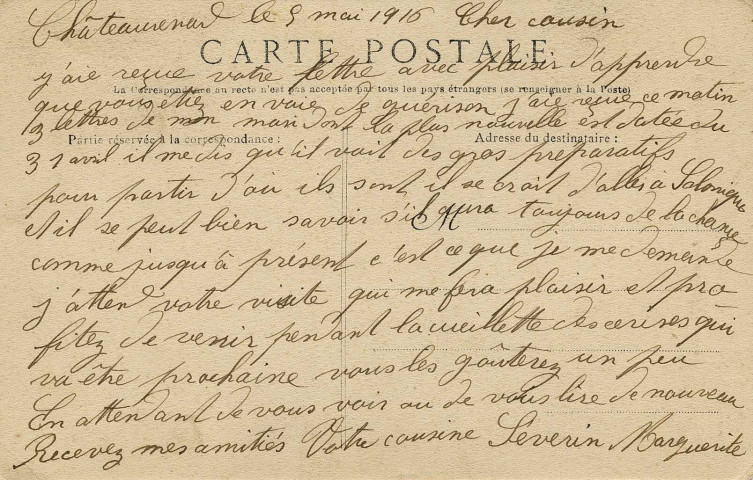 Châteaurenard le 5 mai 1916 Cher cousin
CARTE POSTALE
j'aie reçue votre lettre avec plaisir d'apprendre
La Correspondance au recto n'est pas acceptée par tous les pays étrangers (se renseigner à la Poste)
que vous étiez en voie de guérison j'aie reçue ce matin
3 lettres de mon mari dont la plus nouvelle est datée du
Partie réservée à la correspondance :
Adresse du destinataire :
31 avril il me dis qu'il voit des gros préparatifs
pour partir d'où ils sont il se crait d'allés à Salonique
et il se peut bien savoir s'il aura toujours de la chance
M
comme jusqu'à présent c'est ce que je me demande
j'attend votre visite qui me fera plaisir et pro
fitez de venir pendant la cueillette des cerises qui
va être prochaine vous les goûterez un peu
En attendant de vous voir ou de vous lire de nouveau
Recevez mes amitiés Votre cousine Séverin Marguerite